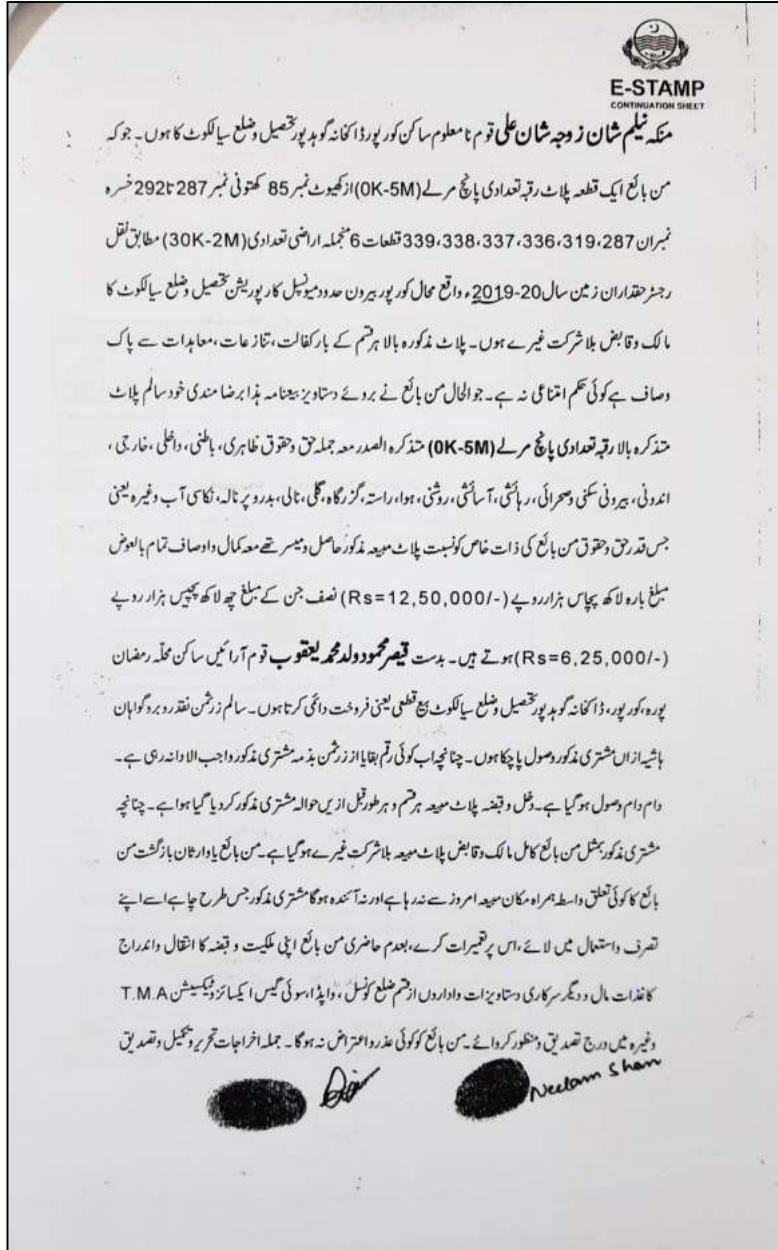 E-STAMP
CONTINUATION SHEET
منکہ نیلم شان زوجہ شان علی قوم نامعلوم ساکن کورپور ڈاکخانہ گوہدپور تحصیل وضلع سیالکوٹ کا ہوں۔ جو کہ
من بائع ایک قطعہ پلاٹ رقبہ تعدادی پانچ مرلے (0K-5M) از کھیوٹ نمبر 85 کھتونی نمبر 287 تا 292 خسرہ
نمبران 287، 319، 336، 337، 338، 339 قطعات 6 منجملہ اراضی تعدادی (30K-2M) مطابق نقل
رجسٹر حقداران زمین سال 20-2019ء واقع محال کورپور بیرون حدود میونسپل کارپوریشن تحصیل وضلع سیالکوٹ کا
مالک وقابض بلا شرکت غیرے ہوں۔ پلاٹ مذکورہ بالا ہر قسم کے بار کفالت، تنازعات، معاہدات سے پاک
وصاف ہے کوئی حکم امتناعی نہ ہے۔ جو الحال من بائع نے بروئے دستاویز بیعنامہ ہذا برضا مندی خود سالم پلاٹ
متذکرہ بالا رقبہ تعدادی پانچ مرلے (0K-5M) متذکرہ الصدر معہ جملہ حق وحقوق ظاہری، باطنی، داخلی، خارجی،
اندونی، بیرونی سکنی وصحرائی، رہائشی، آسائشی، روشنی، ہوا، راستہ، گزرگاہ، گلی، نالی، بدرو پرنالہ، نکاسی آب وغیرہ یعنی
جس قدر حق وحقوق من بائع کی ذات خاص کو نسبت پلاٹ مبیعہ مذکور حاصل ومیسر تھے معہ کمال واوصاف تمام بالعوض
مبلغ بارہ لاکھ پچاس ہزار روپے (Rs=12,50,000/-) نصف جن کے مبلغ چھ لاکھ پچیس ہزار روپے
(Rs=6,25,000/-) ہوتے ہیں۔ بدست قیصر محمود ولد محمد یعقوب قوم آرائیں ساکن محلہ رمضان
پورہ، کورپور، ڈاکخانہ گوہدپور تحصیل وضلع سیالکوٹ بیع قطعی یعنی فروخت دائمی کرتا ہوں۔ سالم زرثمن نقد روبرو گواہان
ہاشیہ ازاں مشتری مذکور وصول پا چکا ہوں۔ چنانچہ اب کوئی رقم بقایا از زرثمن بذمہ مشتری مذکور واجب الادا نہ رہی ہے۔
دام دام وصول ہو گیا ہے۔ دخل وقبضہ پلاٹ مبیعہ ہر قسم و ہر طور قبل ازیں حوالہ مشتری مذکور کر دیا گیا ہوا ہے۔ چنانچہ
مشتری مذکور بمثل من بائع کامل مالک وقابض پلاٹ مبیعہ بلا شرکت غیرے ہو گیا ہے۔ من بائع یا وارثان بازگشت من
بائع کا کوئی تعلق واسطہ ہمراہ مکان مبیعہ امروز سے نہ رہا ہے اور نہ آئندہ ہوگا مشتری مذکور جس طرح چاہے اسے اپنے
تصرف واستعمال میں لائے، اس پر تعمیرات کرے، بعدم حاضری من بائع اپنی ملکیت و قبضہ کا انتقال واندراج
کاغذات مال و دیگر سرکاری دستاویزات واداروں از قسم ضلع کونسل، واپڈا، سوئی گیس ایکسائز وٹیکسیشن T.M.A
وغیرہ میں درج تصدیق ومنظور کروائے۔ من بائع کو کوئی عذر واعتراض نہ ہوگا۔ جملہ اخراجات تحریر وتکمیل وتصدیق
Neelam Shan